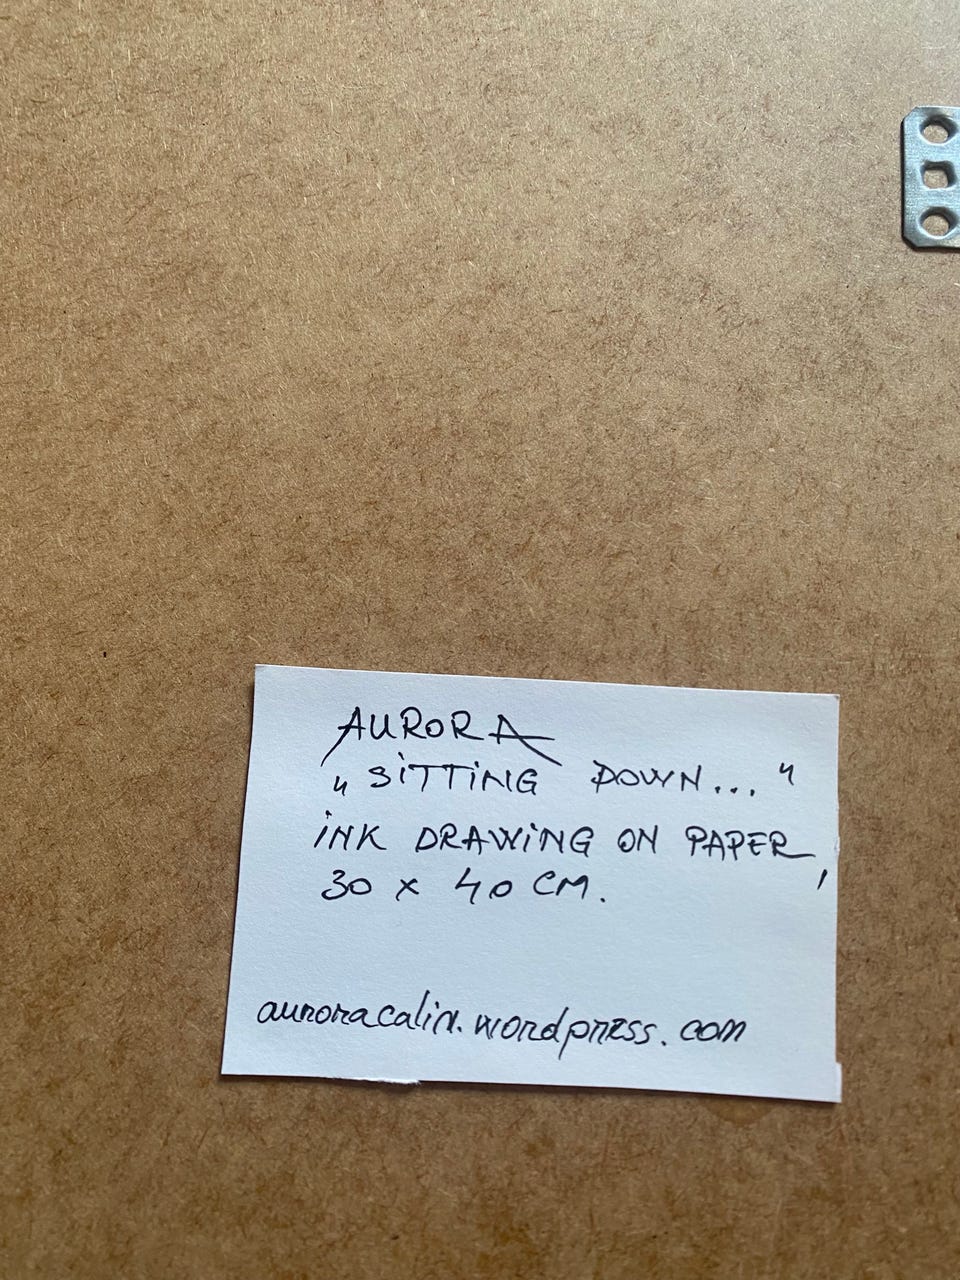 AURORA
„ SiTTiNG DOWN... "
iNK DRAWiNG ON PAPER,
30 x 40 CM.
auroracalin.wordpress.com